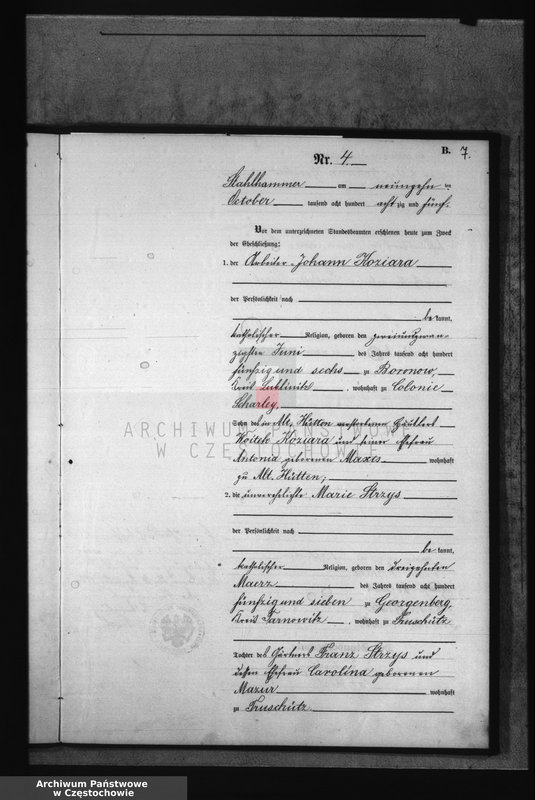 B. 7.
Nr. 4.
Stahlhammer am neunzehn ten
October tausend acht hundert acht zig und fünf.
Vor dem unterzeichneten Standesbeamten erschienen heute zum Zweck
der Eheschließung:
1. der Arbeiter Johann Koziara
der Persönlichkeit nach
be kannt,
katholischer Religion, geboren den zweiundzwan-
zigsten Juni des Jahres tausend acht hundert
fünfzig und sechs zu Boronow,
Kreis Lublinitz, wohnhaft zu Colonie
Scharley,
Sohn des in Alt Hütten verstorbenen Häuslers
Koziara und seiner Ehefrau
Antonia geborenen wohnhaft
zu Alt. Hütten;
2. die unverehelichte Marie Strzys
der Persönlichkeit nach
be kannt,
katholischer Religion, geboren den dreizehnten
Maerz des Jahres tausend acht hundert
fünfzig und sieben zu Georgenberg,
Kreis Tarnowitz, wohnhaft zu Truschütz
Tochter des Gärtners Franz Strzys und
dessen Ehefrau Carolina geborenen
Mazur wohnhaft
zu Truschütz
ARCHIWUM PAŃSTWOWE
W CZĘSTOCHOWIE
Archiwum Państwowe
w Częstochowie